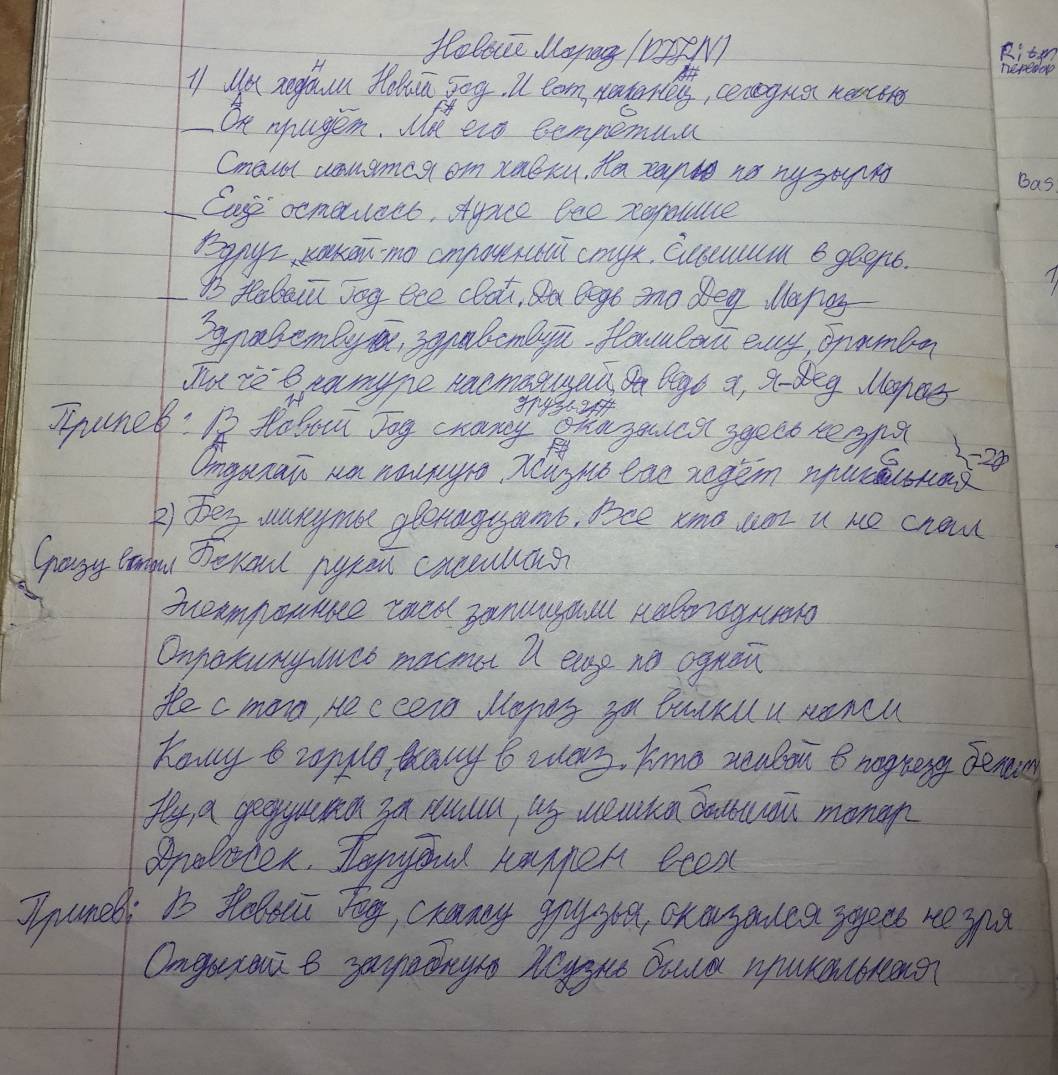 Новый Мороз
Ri
перебор
H F#
1) Мы ждали Новый Год. И вот, наконец, сегодня ночью
A F# G
Он придёт. Мы его встретим
Столы ломятся от хавки. На харю по пузырю
Bas
Ещё осталось. А уже все хорошие
Вдруг, какой-то странный стук. Слышим в дверь.
1)
В Новый Год все свои. Да ведь это Дед Мороз
Здравствуй, здравствуй. Наливай ему, братва
Ты чё в натуре настоящий, Да ведь я, я-Дед Мороз
H друзья F#
Припев: В Новый Год скажу оказался здесь не зря
A F# G
Отдыхай на полную. Жизнь вас ждёт прикольная
-2р
2) Без минуты двенадцать. Все кто мог и не спал
Сразу встал Бокал рукой сжимая
Электронные часы запищали новогоднюю
Опрокинулись тосты И еще по одной
Не с того, не с сего Мороз за вилки и ножи
Кому в горло, кому в глаз. Кто живой в подъезд бежит
Ну, а дедушка за ними, из мешка большой топор
Дровосек. Порубил нахрен всех
Припев: В Новый Год, скажу друзья, оказался здесь не зря
Отдыхай в загробную Жизнь была прикольная